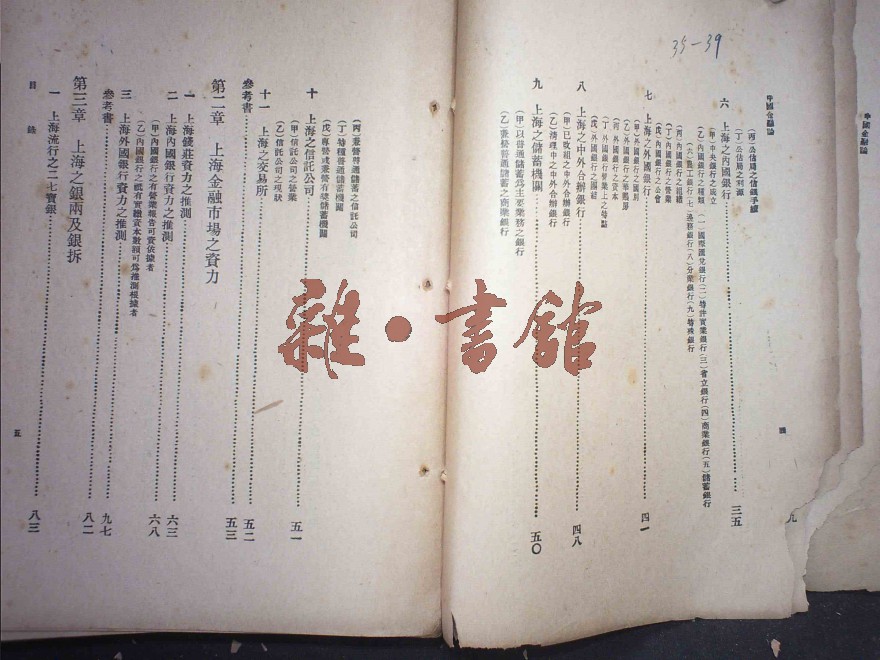 中國金融論
35-39
中國金融論
(丙)公估局之估銀手續
(丁)公估局之利源
六 上海之內國銀行……三五
(甲)中央銀行之成立
(乙)內國銀行之種類 (一)國際匯兌銀行(二)特許實業銀行(三)省立銀行(四)商業銀行(五)儲蓄銀行
(六)農工銀行(七)邊務銀行(八)分業銀行(九)特殊銀行
(丙)內國銀行之組織
(丁)內國銀行之營業
(戊)內國銀行之公會
七 上海之外國銀行……四一
(甲)外國銀行之國別
(乙)外國銀行之華帳房
(丙)外國銀行之資本
(丁)外國銀行營業上之特點
(戊)外國銀行之團結
八 上海之中外合辦銀行……四八
(甲)已改組之中外合辦銀行
(乙)清理中之中外合辦銀行
九 上海之儲蓄機關……五〇
(甲)以普通儲蓄爲主要業務之銀行
(乙)兼營普通儲蓄之商業銀行
四
(丙)兼營普通儲蓄之信託公司
(丁)特種普通儲蓄機關
(戊)專營或兼營有獎儲蓄機關
十 上海之信託公司……五一
(甲)信託公司之營業
(乙)信託公司之現狀
十一 上海之交易所……五二
參考書……五三
第二章 上海金融市場之資力
一 上海錢莊資力之推測……六三
二 上海內國銀行資力之推測……六八
(甲)內國銀行之有營業報告可資依據者
(乙)內國銀行之祇有實繳資本數額可爲推測根據者
三 上海外國銀行資力之推測……九七
參考書……八二
第三章 上海之銀兩及銀拆
一 上海流行之二七寶銀……八三
目錄
五
雜·書館